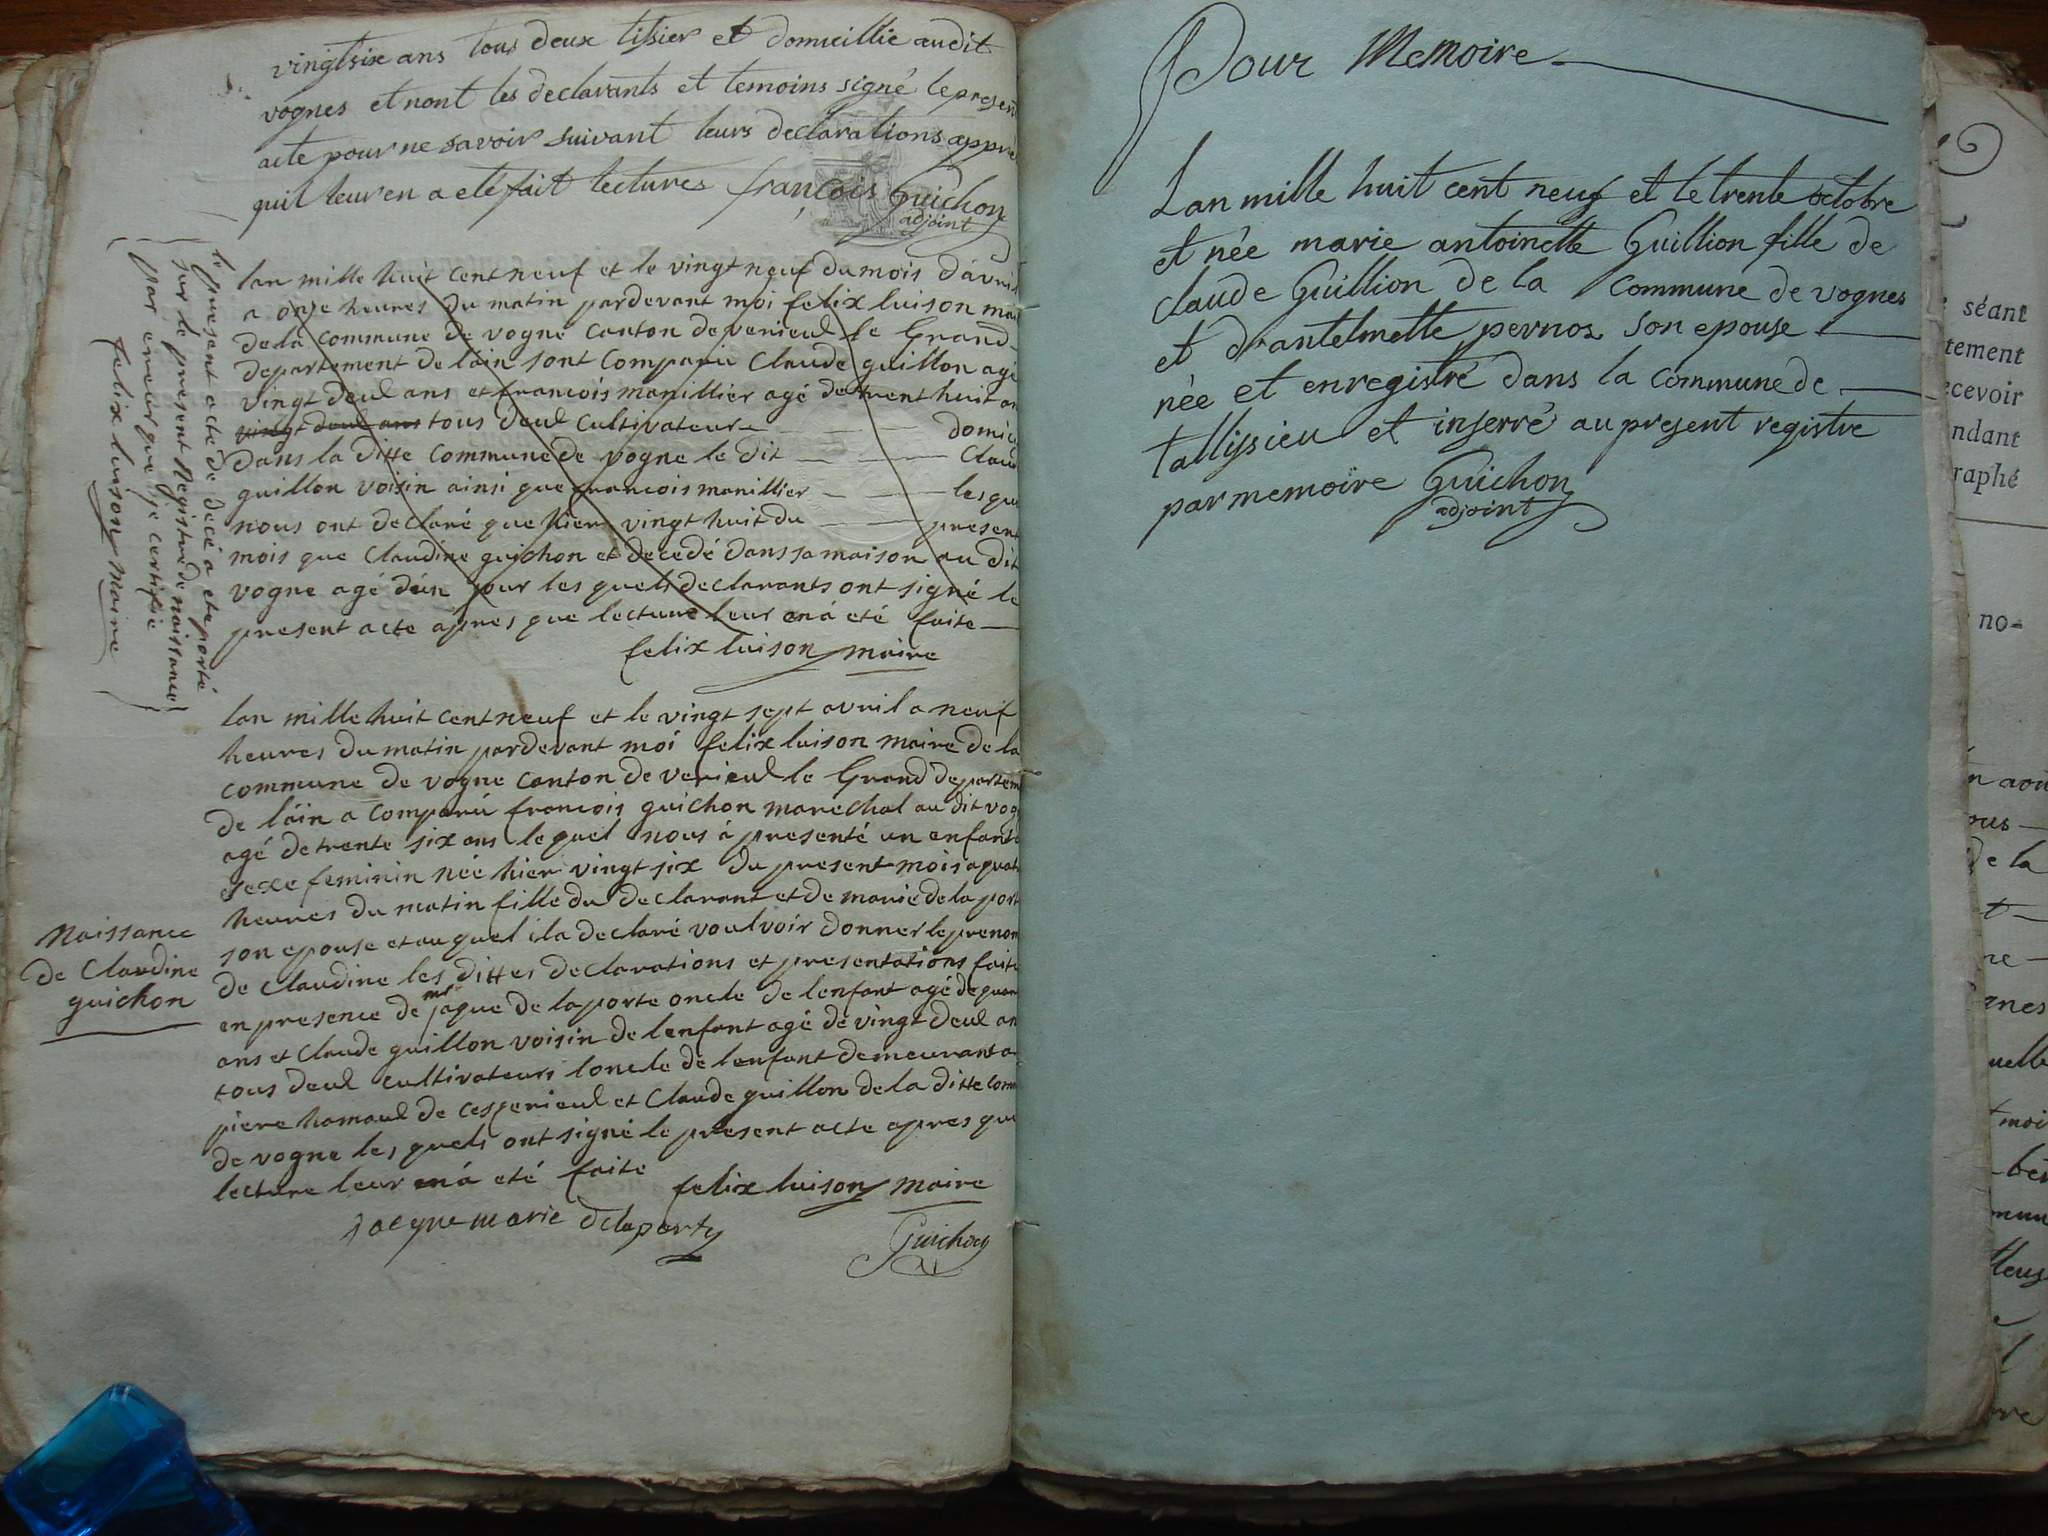 vingtsix ans tous deux tissier et domicillié audit
vognes et nont les declarants et temoins signé le present
acte pour ne savoir suivant leurs declarations appre
quil leur en a eté fait lectures françois Guichon
adjoint
lan mille huit cent neuf et le vingt neuf du mois d'avril
a onze heures du matin pardevant moi felix luison mai
de la commune de vogne canton de verieul le Grand
departement de lain sont comparu Claude guillon agé
vingt deul ans et francois manillier agé de trent huit an
vingt deul ans tous deul Cultivateur domici
dans la ditte Commune de vogne le dit Claud
guillon voisin ainsi que francois manillier lesque
nous ont declaré que hier vingt huit du present
mois que Claudine guichon et decedé dans sa maison au dit
vogne agé d'un jour les quels declarants ont signé le
present acte apres que lecture leur en á eté faite
felix luison maire
le present acte de decé a eté porté
sur le present Registre de naissance
par erreur que je certifie
felix luison maire
lan mille huit cent neuf et le vingt sept avril a neuf
heures du matin pardevant moi felix luison maire de la
commune de vogne canton de verieul le Grand departem
de láin a comparú francois guichon marechal au dit vog
agé de trente six ans lequel nous á presenté un enfant
sexe feminin née hier vingt six du present mois a quat
heures du matin fille du declarant et de marie de la port
son epouse et auquel il a declaré voulvoir donner le prenom
de Claudine les dittes declarations et presentations faite
en presence de jaque mie de laporte oncle de lenfant agé de quar
ans et Claude guillon voisin de lenfant agé de vingt deul an
tous deul cultivateurs loncle de lenfant demeurant a
piere hamaul de ceszerieul et Claude guillon de la ditte com
de vogne les quels ont signé le present acte apres que
lecture leur en á eté faite felix luison maire
Jacque marie delaporte
Guichon
Naissance
de Claudine
guichon
Pour Memoire
Lan mille huit cent neuf et le trente octobre
et née marie antoinette Guillion fille de
claude Guillion de la commune de vognes
et dantelmette pernos son epouse
née et enregistré dans la commune de
tallissieu et inserré au present registre
par memoire Guichon
adjoint
séant
tement
ecevoir
ndant
raphé
no-